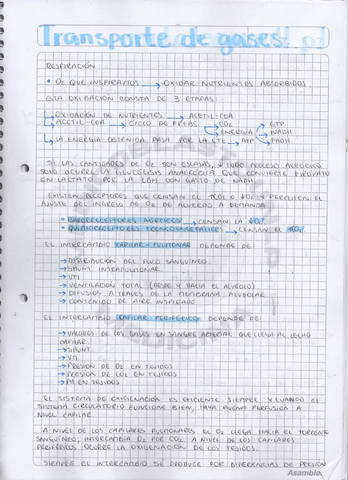 Transporte de gases
RESPIRACIÓN
• O₂ QUE INSPIRAMOS → OXIDAR NUTRIENTES ABSORBIDOS
ESTA OXIDACIÓN CONSTA DE 3 ETAPAS
→ OXIDACIÓN DE NUTRIENTES → ACETIL-COA
→ ACETIL-COA → CICLO DE KREBS → CO₂ → GTP
ENERGÍA → NADH
→ LA ENERGÍA OBTENIDA PASA POR LA CTE → ATP FADH
SI LAS CANTIDADES DE O₂ SON ESCASAS, ↓ TODO PROCESO AERÓBICO
SOLO OCURRE LA GLUCÓLISIS ANAERÓBICA QUE CONVIERTE PIRUVATO
EN LACTATO POR LA LDH CON GASTO DE NADH
EXISTEN RECEPTORES QUE CENSAN EL ↑CO₂ O ↓O₂ Y PERMITEN EL
AJUSTE DEL INGRESO DE O₂ DE ACUERDO A DEMANDA
• BARORRECEPTORES AÓRTICOS → CENSAN LA ↓O₂
• QUIMIORRECEPTORES TRONCOENCEFÁLICOS → CENSAN EL ↑CO₂
EL INTERCAMBIO CAPILAR-PULMONAR DEPENDE DE
→ DISTRIBUCIÓN DEL FLUJO SANGUÍNEO
→ SHUNT INTRAPULMONAR
→ VENTILACIÓN TOTAL (DESDE Y HACIA EL ALVÉOLO)
→ DIFUSIÓN A TRAVÉS DE LA MEMBRANA ALVEOLAR
→ CONTENIDO DE AIRE INSPIRADO
EL INTERCAMBIO CAPILAR PERIFÉRICO DEPENDE DE
→ VALORES DE LOS GASES EN SANGRE ARTERIAL QUE LLEGA AL LECHO
CAPILAR
→ SHUNT
→ PRESIÓN DE O₂ EN TEJIDOS
→ PRESIÓN DE CO₂ EN TEJIDOS
→ PH EN TEJIDOS
EL SISTEMA DE OXIGENACIÓN ES EFICIENTE SIEMPRE Y CUANDO EL
SISTEMA CIRCULATORIO FUNCIONE BIEN, HAYA BUENA PERFUSIÓN A
NIVEL CAPILAR
A NIVEL DE LOS CAPILARES PULMONARES EL O₂ LLEGA HACIA EL TORRENTE
SANGUÍNEO; INTERCAMBIA O₂ POR CO₂. A NIVEL DE LOS CAPILARES
PERIFÉRICOS OCURRE LA OXIGENACIÓN DE LOS TEJIDOS.
SIEMPRE EL INTERCAMBIO SE PRODUCE POR DIFERENCIAS DE PRESIÓN